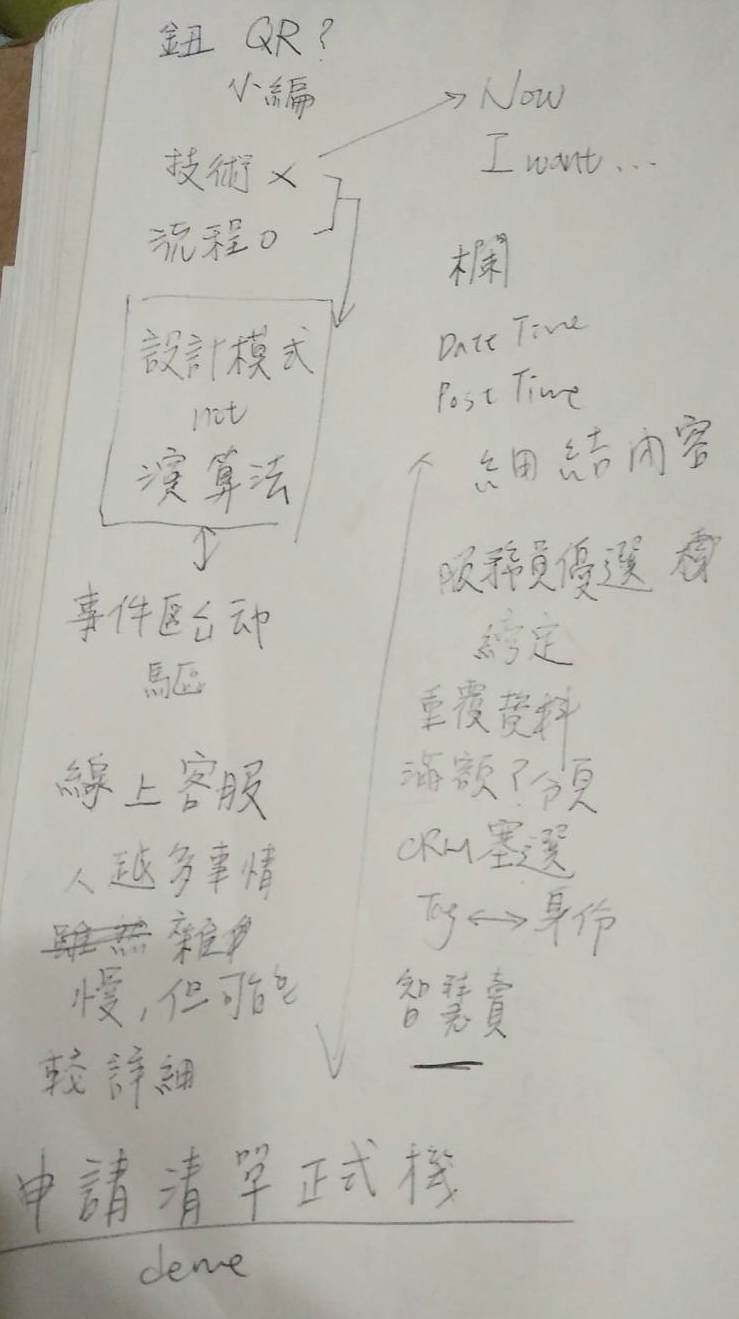 鈕 QR?
小編
技術 ×
流程 o
設計模式
not
演算法
事件區台动
驅
線上客服
人越多事情
雖然 雜
慢,但可能
較詳細
→ Now
I want ...
欄
Date Time
Post Time
細結內容
服務員優選
綁定
重覆資料
滿額?領
CRM塞選
Tag ↔ 身份
智慧賣
申請清單正式機
deme